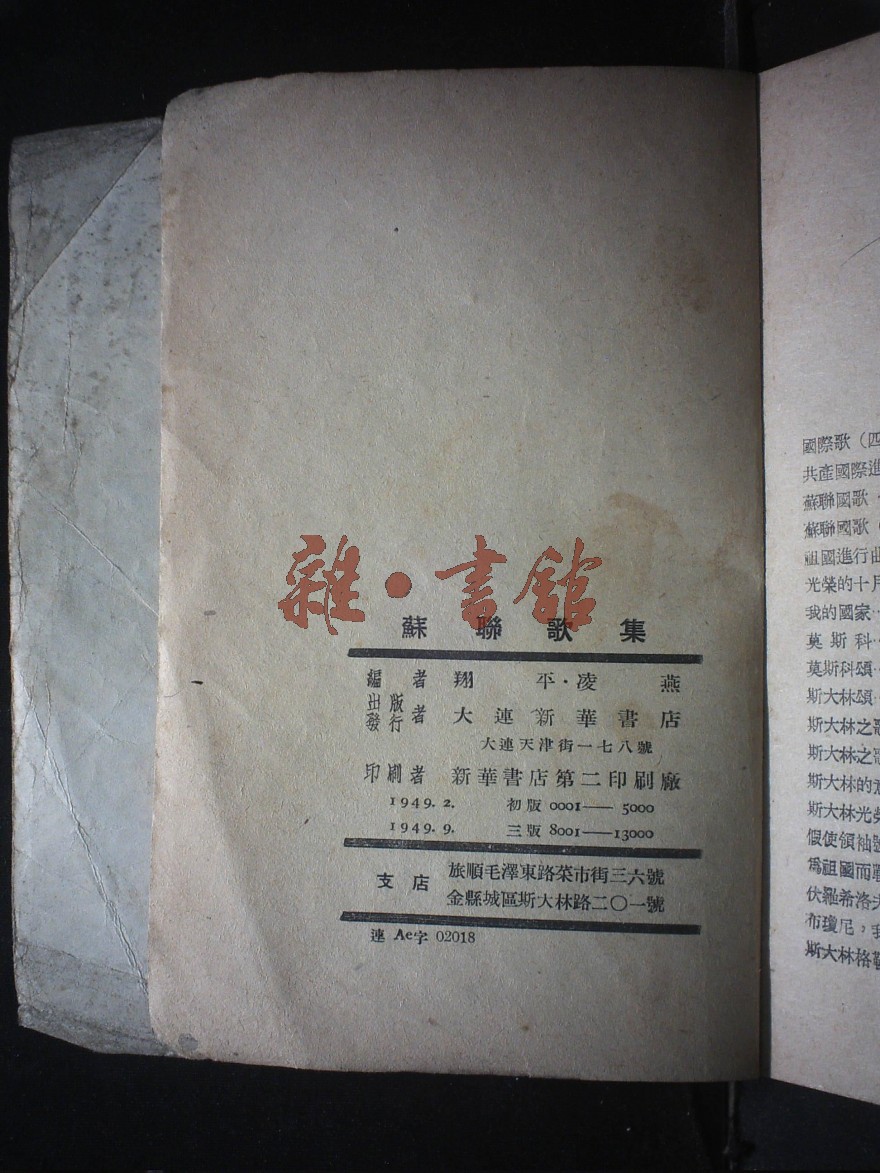 雜·書館
蘇聯歌集
編者 翔平·凌燕
出版發行者 大連新華書店
大連天津街一七八號
印刷者 新華書店第二印刷廠
1949.2. 初版 0001——5000
1949.9. 三版 8001——13000
支店 旅順毛澤東路菜市街三六號
金縣城區斯大林路二〇一號
連 Ae字 02018
國際歌（四
共產國際進
蘇聯國歌
蘇聯國歌（
祖國進行曲
光榮的十月
我的國家··
莫斯科·
莫斯科頌·
斯大林頌·
斯大林之歌
斯大林之歌
斯大林的
斯大林光榮
假使領袖號
為祖國而戰
伏羅希洛夫
布瓊尼，我
斯大林格勒